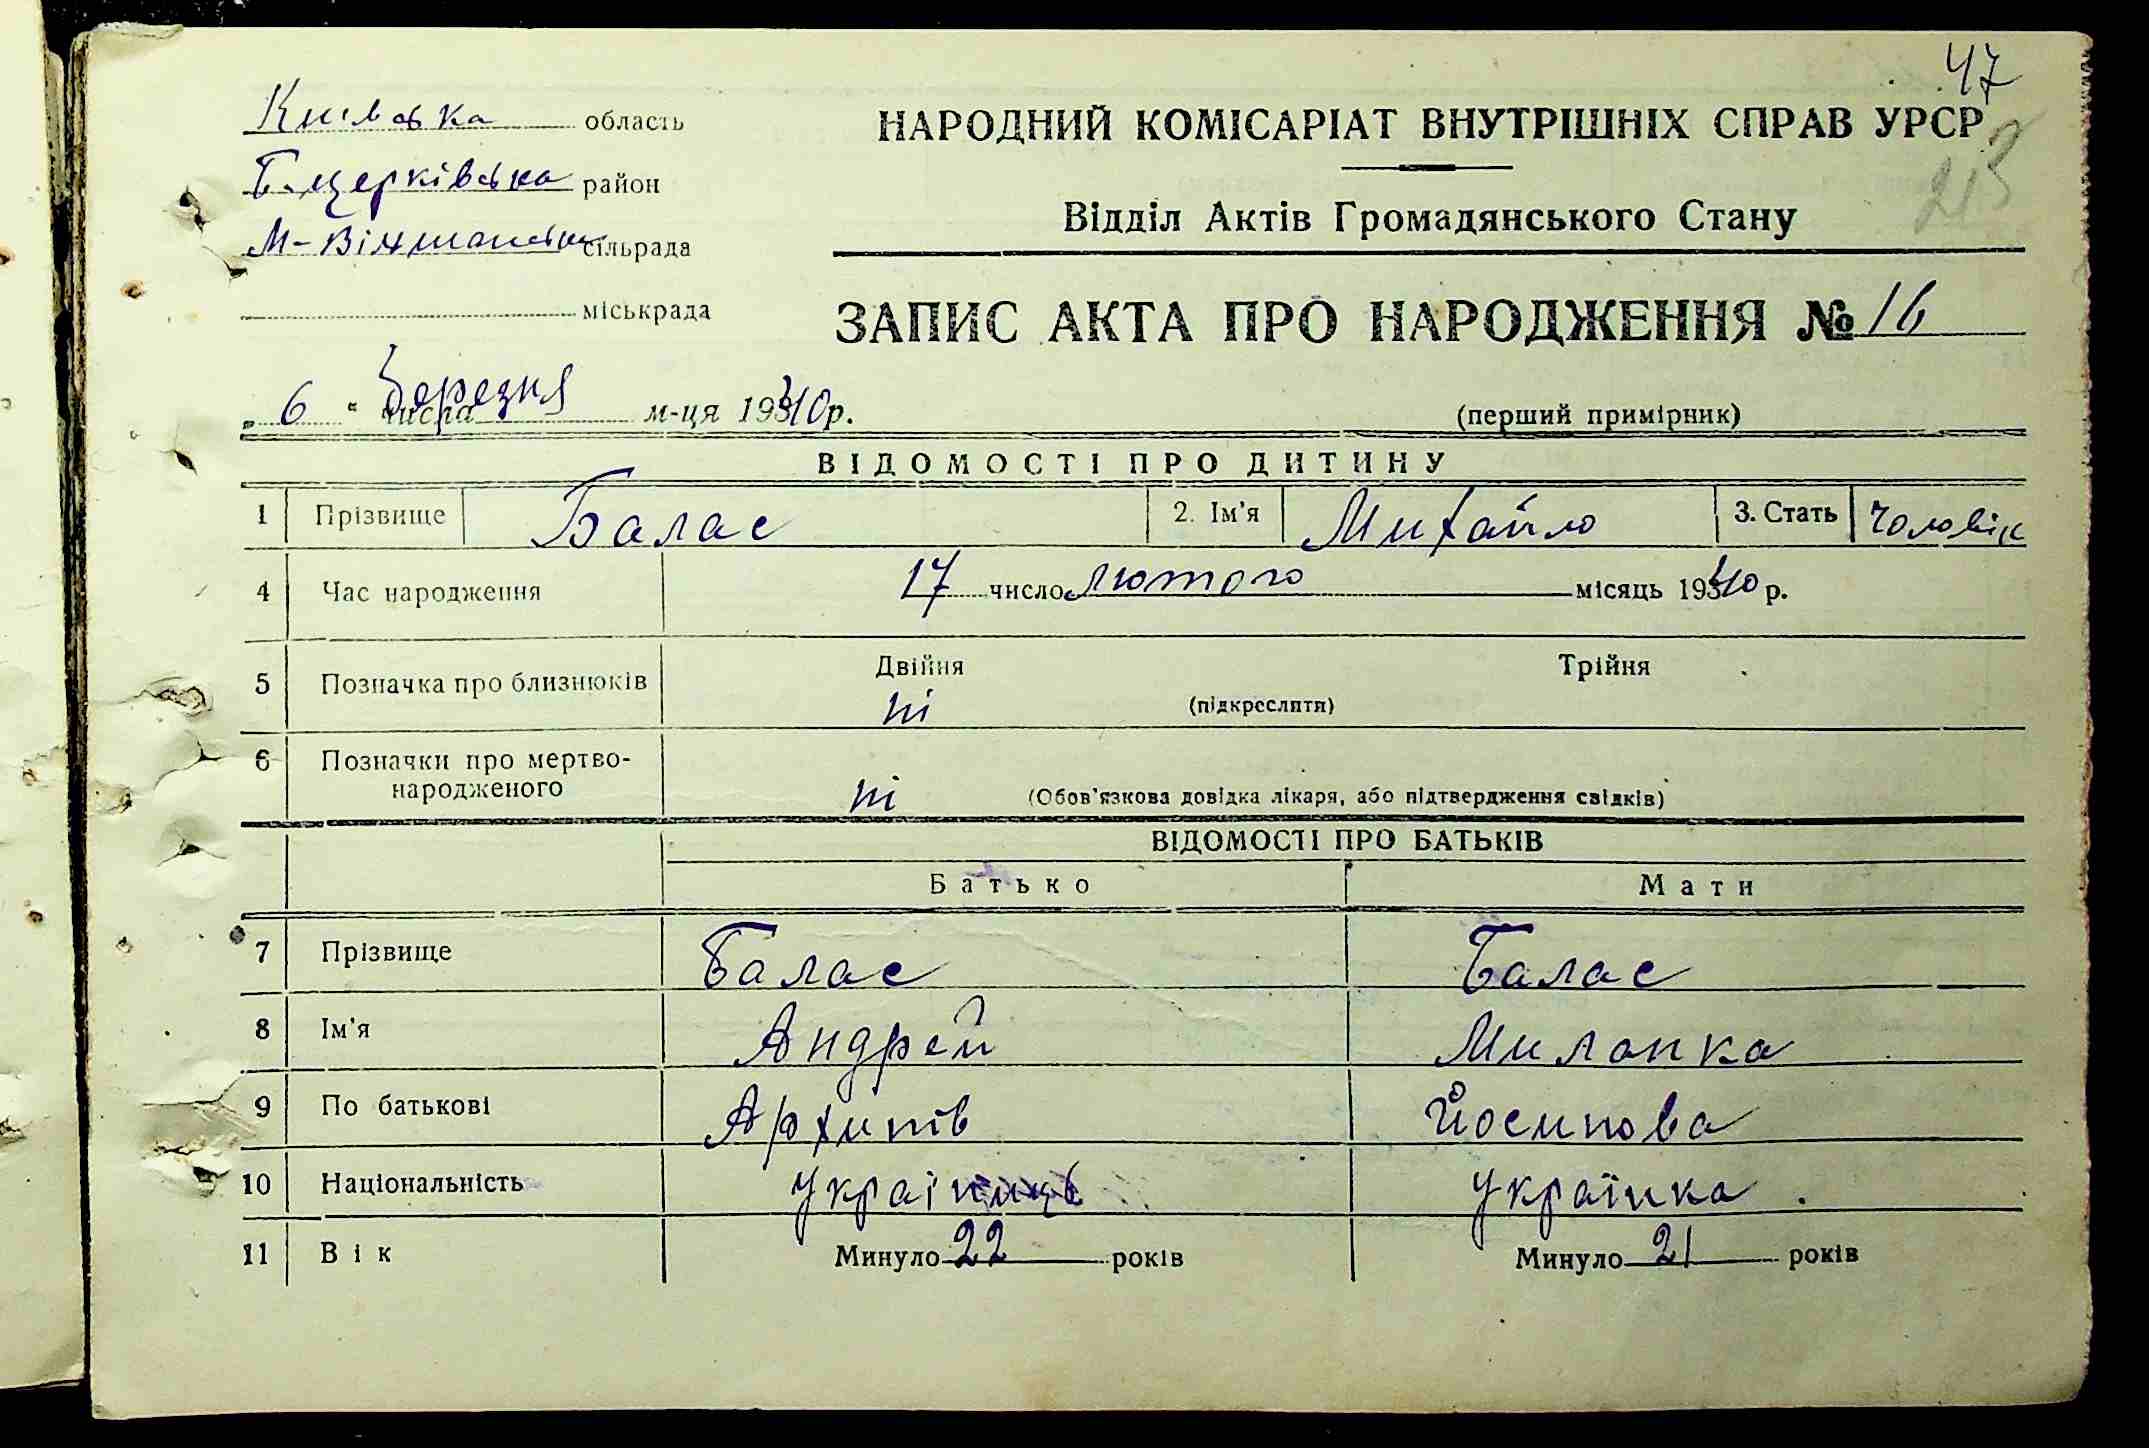 47
Київська область
НАРОДНИЙ КОМІСАРІАТ ВНУТРІШНІХ СПРАВ УРСР
Б-Церківська район
Відділ Актів Громадянського Стану
М-Вільшанська сільрада
міськрада
ЗАПИС АКТА ПРО НАРОДЖЕННЯ № 16
„ 6 " числа березня м-ця 1940 р.
(перший примірник)
ВІДОМОСТІ ПРО ДИТИНУ
1 Прізвище Балас 2. Ім'я Михайло 3. Стать чоловік
4 Час народження 17 число лютого місяць 1940 р.
5 Позначка про близнюків Двійня Трійня
ні (підкреслити)
6 Позначки про мертво-
народженого ні (Обов'язкова довідка лікаря, або підтвердження свідків)
ВІДОМОСТІ ПРО БАТЬКІВ
Батько Мати
7 Прізвище Балас Балас
8 Ім'я Андрей Миланка
9 По батькові Архипів Йосипова
10 Національність українець українка
11 Вік Минуло 22 років Минуло 21 років